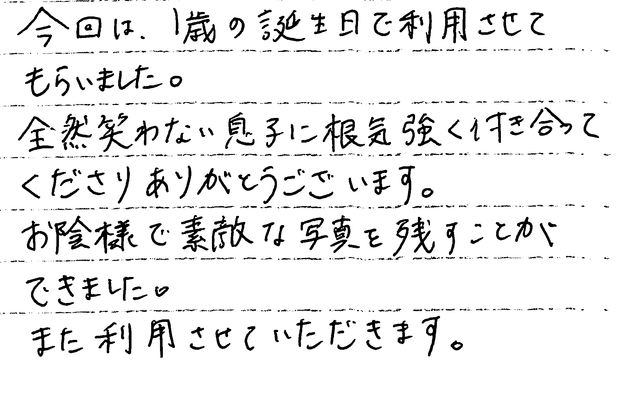 今回は、1歳の誕生日で利用させて
もらいました。
全然笑わない息子に根気強く付き合って
くださりありがとうございます。
お陰様で素敵な写真を残すことが
できました。
また利用させていただきます。